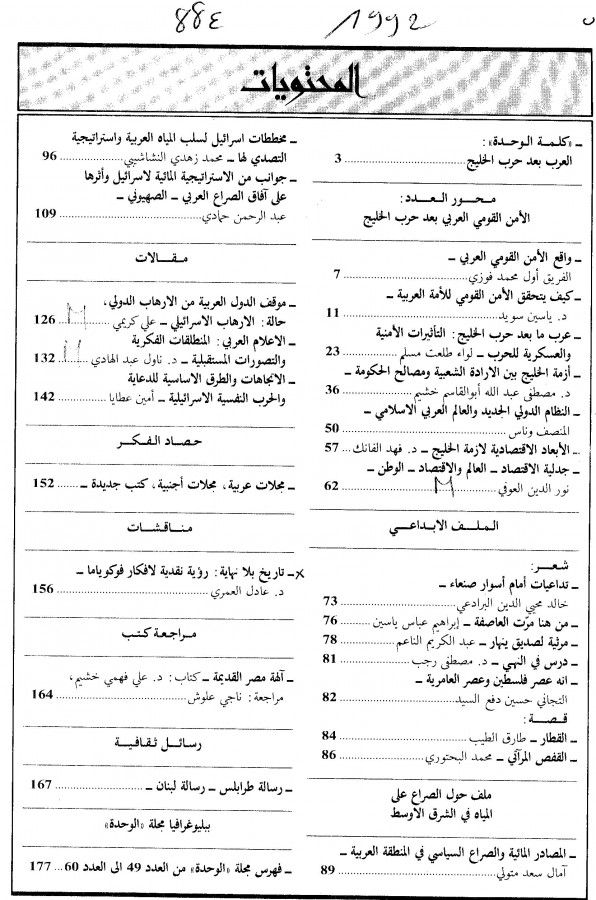 ٤٨٨ 1992
المحتويات
ـ «كلمة الوحدة»:
العرب بعد حرب الخليج ........ 3
محور العدد:
الأمن القومي العربي بعد حرب الخليج
ـ واقع الأمن القومي العربي ـ
الفريق أول محمد فوزي ........ 7
ـ كيف يتحقق الأمن القومي للأمة العربية ـ
د. ياسين سويد ........ 11
ـ عرب ما بعد حرب الخليج: التأثيرات الأمنية
والعسكرية للحرب ـ لواء طلعت مسلم ........ 23
ـ أزمة الخليج بين الارادة الشعبية ومصالح الحكومة ـ
د. مصطفى عبد الله أبوالقاسم خشيم ........ 36
ـ النظام الدولي الجديد والعالم العربي الاسلامي ـ
المنصف وناس ........ 50
ـ الأبعاد الاقتصادية لازمة الخليج ـ د. فهد الفانك ... 57
ـ جدلية الاقتصاد ـ العالم والاقتصاد ـ الوطن ـ
نور الدين العوفي ........ 62
الملف الابداعي
شعر:
ـ تداعيات أمام أسوار صنعاء ـ
خالد محيي الدين البرادعي ........ 73
ـ من هنا مرّت العاصفة ـ إبراهيم عباس ياسين ........ 76
ـ مرثية لصديق ينهار ـ عبد الكريم الناعم ........ 78
ـ درس في النهي ـ د. مصطفى رجب ........ 81
ـ انه عصر فلسطين وعصر العامرية ـ
التجاني حسين دفع السيد ........ 82
قصة:
ـ القطار ـ طارق الطيب ........ 84
ـ القفص المرآتي ـ محمد البحتوري ........ 86
ملف حول الصراع على
المياه في الشرق الاوسط
ـ المصادر المائية والصراع السياسي في المنطقة العربية ـ
آمال سعد متولي ........ 89
ـ مخططات اسرائيل لسلب المياه العربية واستراتيجية
التصدي لها ـ محمد زهدي النشاشيبي ........ 96
ـ جوانب من الاستراتيجية المائية لاسرائيل وأثرها
على آفاق الصراع العربي ـ الصهيوني ـ
عبد الرحمن حمادي ........ 109
مقالات
ـ موقف الدول العربية من الارهاب الدولي،
حالة: الارهاب الاسرائيلي ـ علي كريمي ........ 126
ـ الاعلام العربي: المنطلقات الفكرية
والتصورات المستقبلية ـ د. ناول عبد الهادي ........ 132
ـ الاتجاهات والطرق الاساسية للدعاية
والحرب النفسية الاسرائيلية ـ أمين عطايا ........ 142
حصاد الفكر
ـ مجلات عربية، مجلات أجنبية، كتب جديدة ـ .... 152
مناقشات
ـ تاريخ بلا نهاية: رؤية نقدية لافكار فوكوياما ـ
د. عادل العمري ........ 156
مراجعة كتب
ـ آلهة مصر القديمة ـ كتاب: د. علي فهمي خشيم،
مراجعة: ناجي علوش ........ 164
رسائل ثقافية
ـ رسالة طرابلس ـ رسالة لبنان ـ ........ 167
ببليوغرافيا مجلة «الوحدة»
ـ فهرس مجلة «الوحدة» من العدد 49 الى العدد 60 ... 177